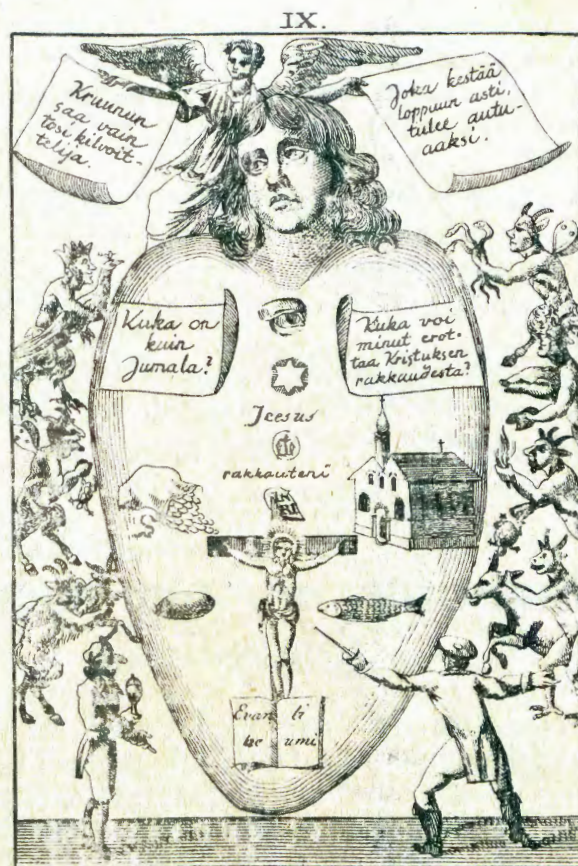 IX.
Kruunun
saa vain
tosi kilvoit-
telija.
Joka kestää
loppuun asti,
tulee autu-
aaksi.
Kuka on
kuin
Jumala?
Kuka voi
minut erot-
taa Kristuksen
rakkaudesta?
Jeesus
rakkauteni
IN
RI
Evan li
ke umi